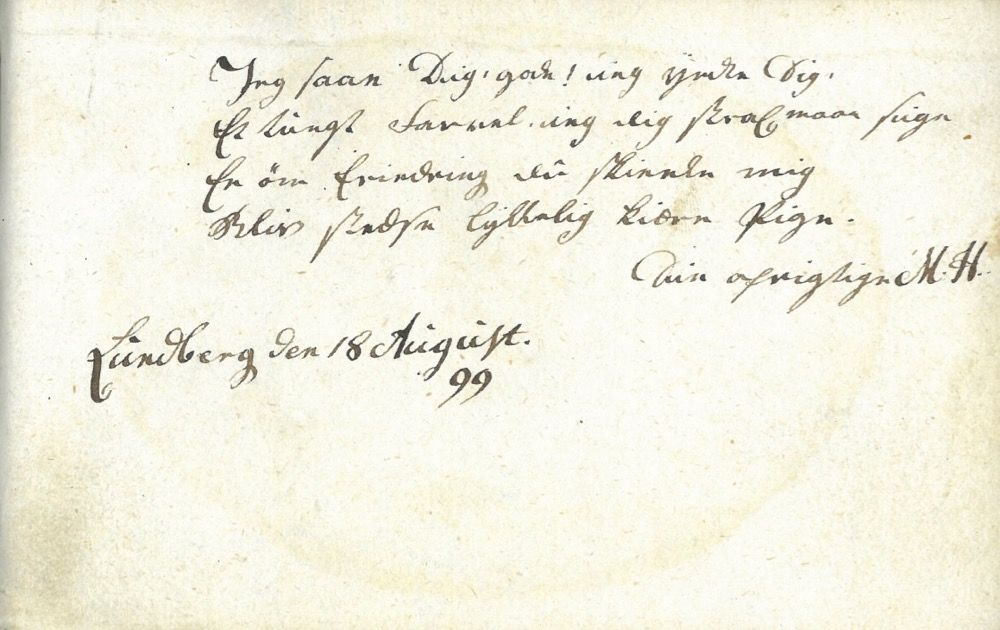 Jeg saae Dig, gode! ieg yndte Dig,
Et tungt Farvel ieg dig strax maae sige
En øm Erindring du skienke mig
Bliv stedse lykkelig kiære Pige.
Din oprigtige M. H.
Lundberg den 18 August.
99